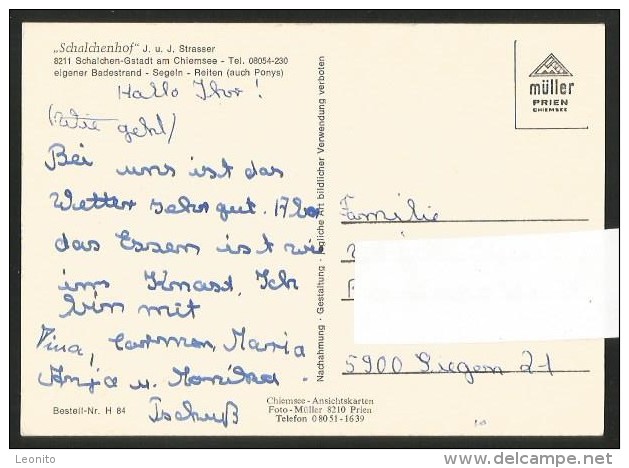 „Schalchenhof" J. u. J. Strasser
8211 Schalchen-Gstadt am Chiemsee - Tel. 08054-230
eigener Badestrand - Segeln - Reiten (auch Ponys)
Hallo Ihr!
(Wie geht)
Bei uns ist das
Wetter sehr gut. Aber
das Essen ist wie
im Knast. Ich
bin mit
Tina, Carmen, Maria
Anja u. Monika.
Tschuß
Bestell-Nr. H 84
Chiemsee-Ansichtskarten
Foto-Müller 8210 Prien
Telefon 08051-1639
Nachahmung - Gestaltung - jegliche Art bildlicher Verwendung verboten
müller
PRIEN
CHIEMSEE
Familie
5900 Siegen 21
Leonito
www.delcampe.net